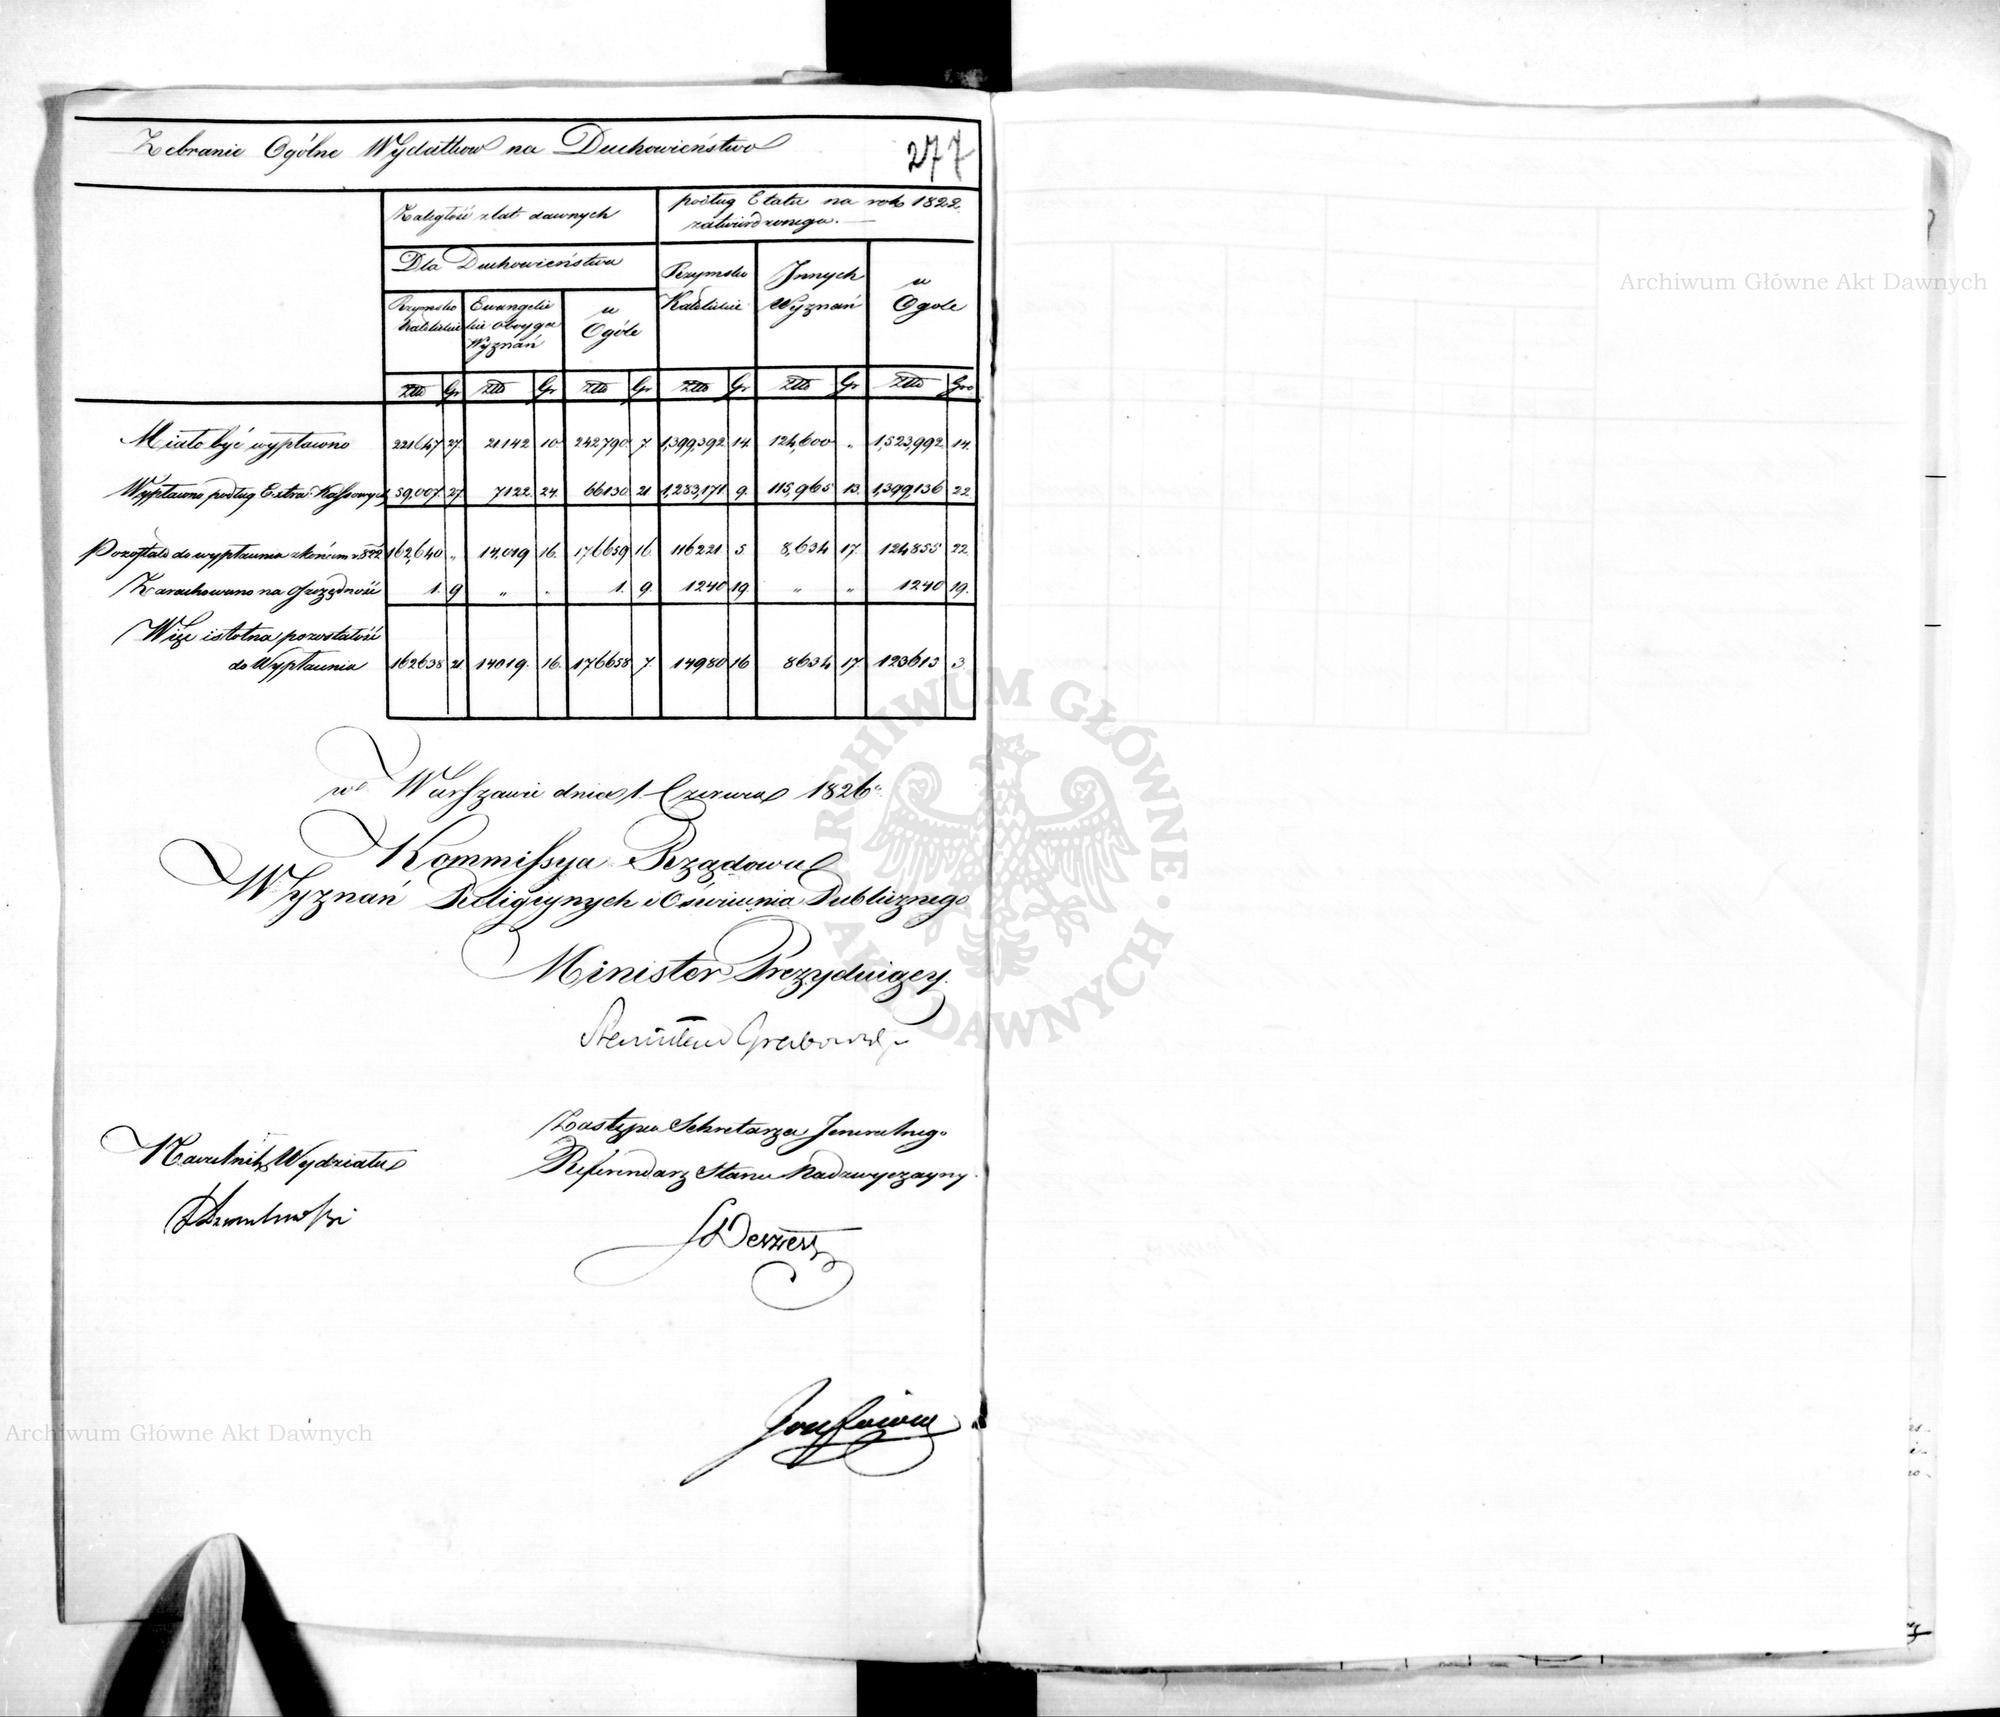 Zebranie Ogólne Wydatkow na Duchowieństwo
277
Zaległość z lat dawnych
podług Etatu na rok 1822.
zatwierdzonego.
Dla Duchowieństwa
Rzymsko Katolickie
Ewangelickie oboyga Wyznań
w Ogóle
Rzymsko Katolickie
Innych Wyznań
w Ogole
Złł Gr Złł Gr Złł Gr Złł Gr Złł Gr Złł Gro
Miało być wypłacono 221647 27. 21142 10 242,790 7. 1,399,392 14. 124,600 „ 1,523,992 14.
Wypłacono podług Extra: Kassowych 59,007 27 7122 24. 66130 21 1,283,171 9. 115,965 13. 1,399,136 22
Pozostało do wypłacenia z końcem r. 822 162,640 „ 14,019 16. 176659 16. 116221 5 8,634 17. 124855 22.
Zarachowano na oszczędność 1. 9 „ „ 1. 9. 1240 19. „ „ 1240 19.
Więc istotna pozostałość
do Wypłacenia 162638 21 14019. 16. 176658 7. 14980 16 8634 17. 123613 3.
w Warszawie dnia 1. Czerwca 1826
Kommissya Rządowa
Wyznań Religiynych i Oświecenia Publicznego
Minister Prezyduiący.
Stanisław Grabowski
Zastępca Sekretarza Jeneralnego
Naczelnik Wydziału
Referendarz Stanu Nadzwyczayny.
Archiwum Główne Akt Dawnych
Archiwum Główne Akt Dawnych
ARCHIWUM GŁÓWNE · AKT DAWNYCH ·